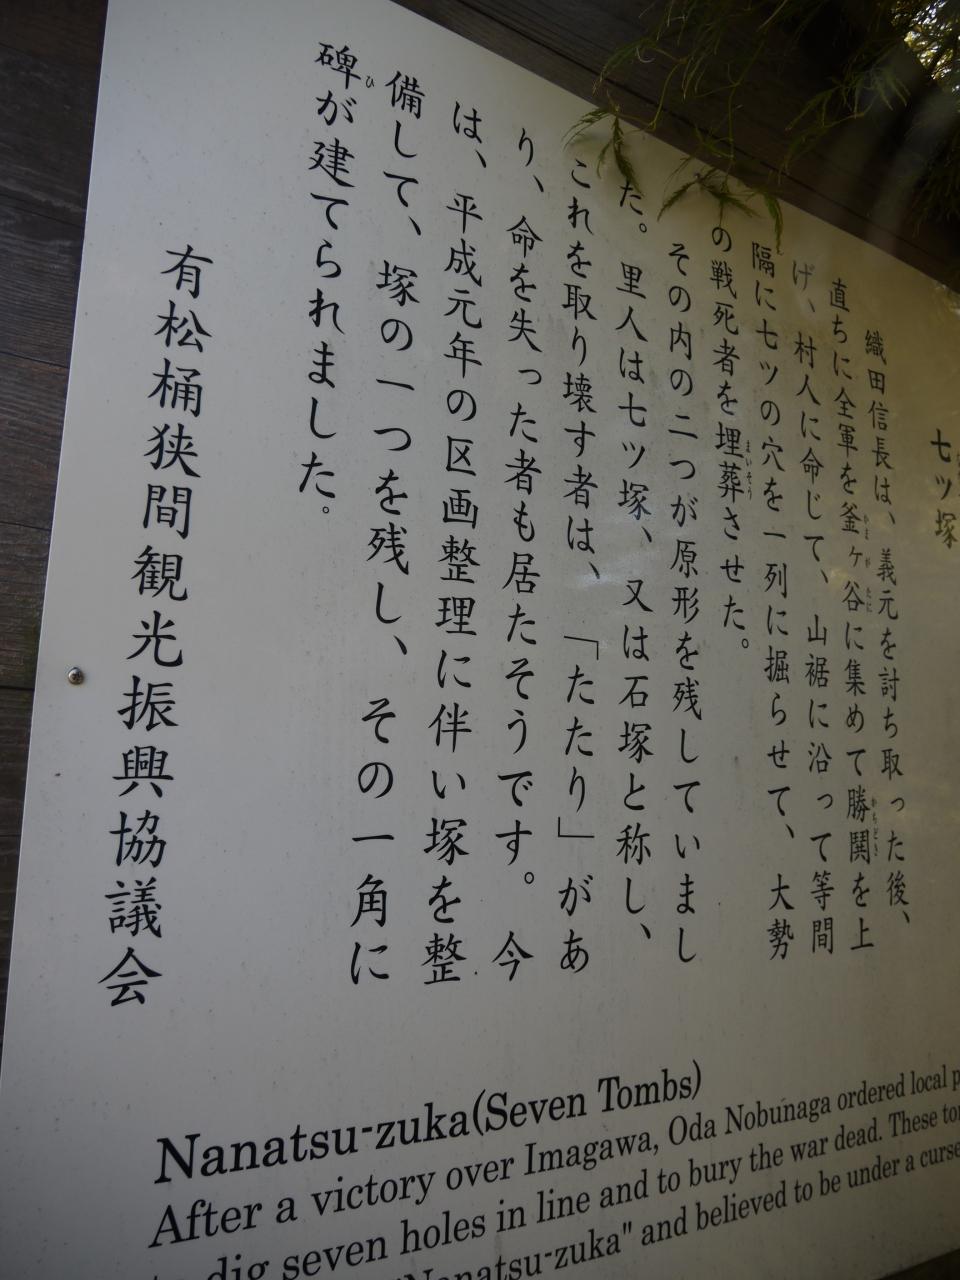 七ツ塚
織田信長は、義元を討ち取った後、
直ちに全軍を釜ヶ谷に集めて勝鬨を上
げ、村人に命じて、山裾に沿って等間
隔に七ツの穴を一列に掘らせて、大勢
の戦死者を埋葬させた。
その内の二つが原形を残していまし
た。里人は七ツ塚、又は石塚と称し、
これを取り壊す者は、「たたり」があ
り、命を失った者も居たそうです。今
は、平成元年の区画整理に伴い塚を整
備して、塚の一つを残し、その一角に
碑が建てられました。
有松桶狭間観光振興協議会
Nanatsu-zuka(Seven Tombs)
After a victory over Imagawa, Oda Nobunaga ordered local
dig seven holes in line and to bury the war dead. These
"Nanatsu-zuka" and believed to be under a curse